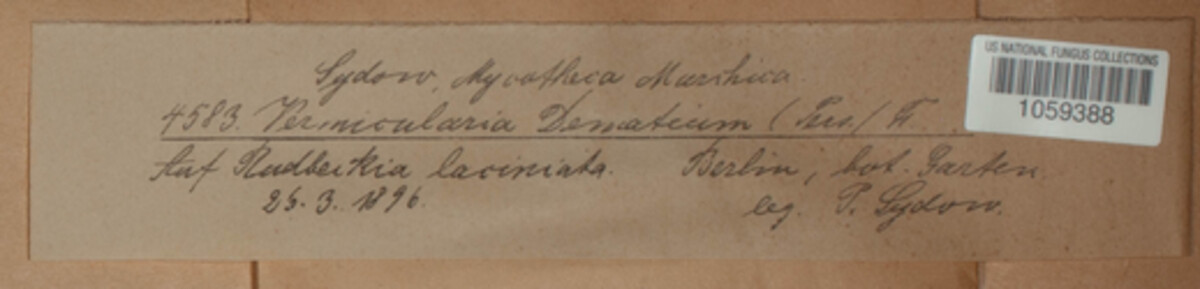 Sydow, Mycotheca Marchica
4583. Vermicularia Dematium (Pers.) Fr.
Auf Rudbeckia laciniata. Berlin, bot. Garten
25. 3. 1896. leg. P. Sydow.
US NATIONAL FUNGUS COLLECTIONS
1059388